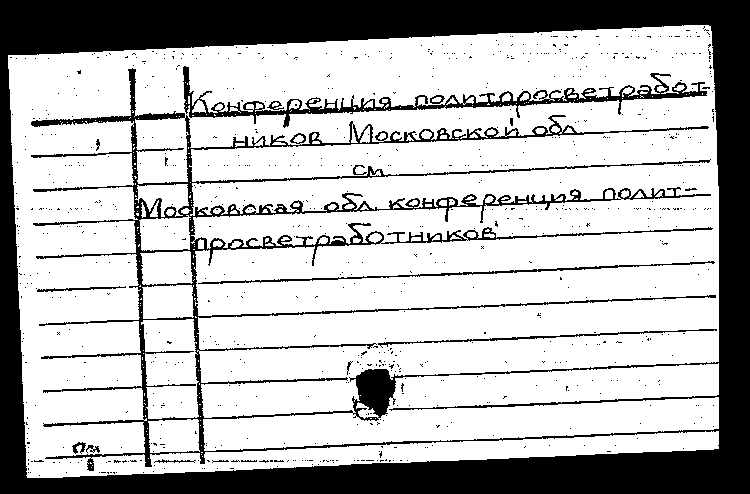 Конференция политпросветработ-
ников Московской обл
см
Московская обл. конференция полит-
просветработников